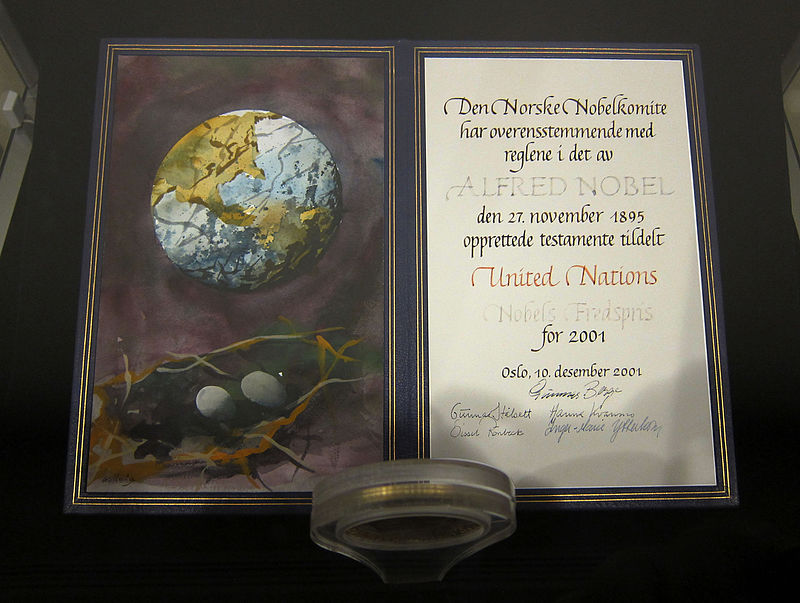 Den Norske Nobelkomite
har overensstemmende med
reglene i det av
ALFRED NOBEL
den 27. november 1895
opprettede testamente tildelt
United Nations
Nobels Fredspris
for 2001
Oslo, 10. desember 2001
Gunnar Berge
Gunnar Stålsett Hanna Kvanmo
Sissel Rønbeck Inger-Marie Ytterhorn